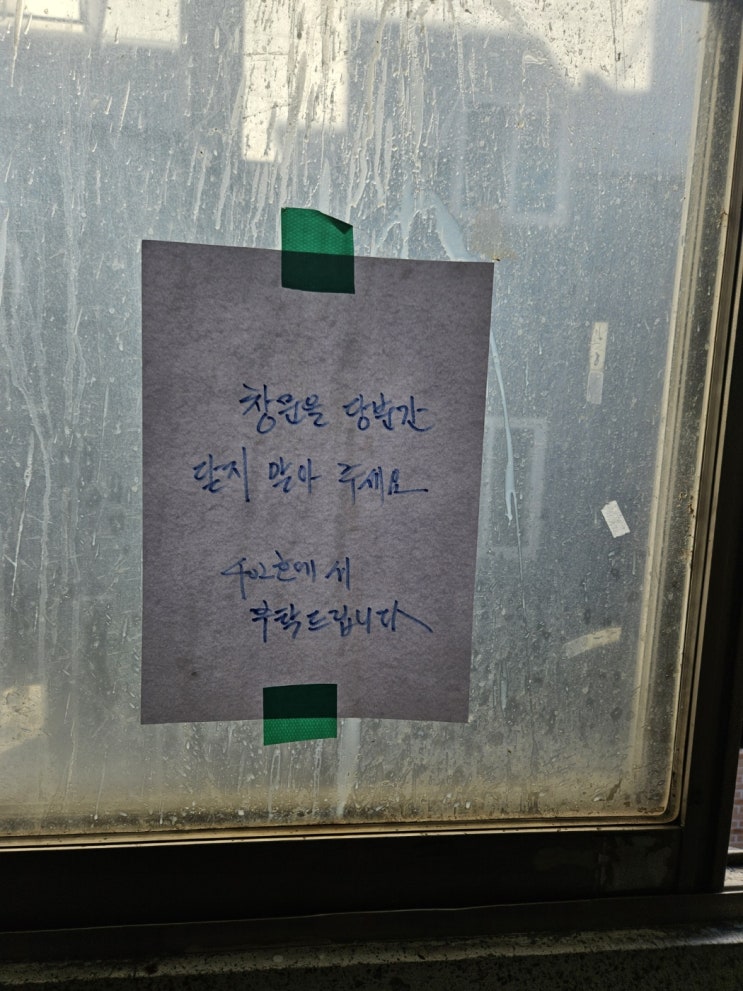 창문을 당분간
닫지 말아 주세요
402호에서
부탁드립니다